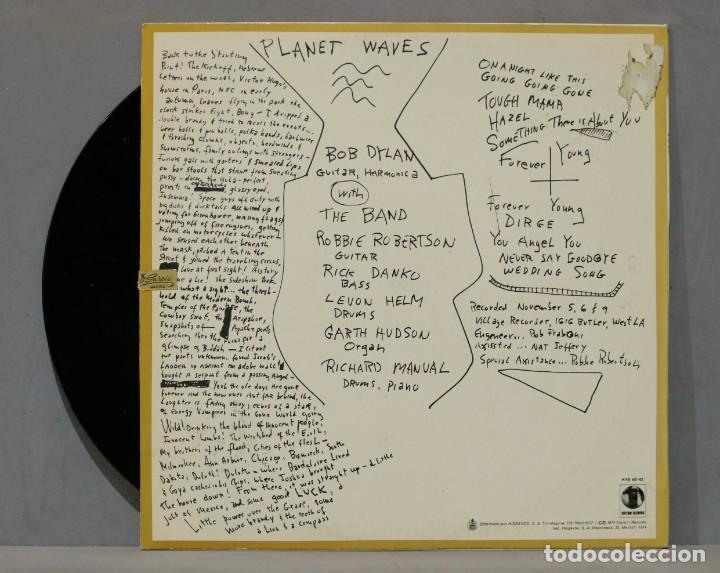 Back to the Starting
Point! The Kickoff, Hebrew
Letters on the wall, Victor Hugo's
house in Paris, NYC in early
autumn, leaves flying in the park, the
clock strikes Eight, Bong - I dropped a
double brandy & tried to recall the events...
beer halls & pin balls, polka bands, barbwire
& thrashing clowns, objects, headwinds &
snowstorms, family outings with strangers -
Furious gals with garters & smeared lips
on bar stools that stank from sweating
pussy - doing the Hula - perfect,
priests in overhauls, glassy eyed,
Insomnia! Space guys off duty with
big dicks & ducktails All wired up &
voting for Eisenhower, waving flags &
jumping off of fire engines, getting
killed on motorcycles whatever -
We sensed each other beneath
the mask, pitched a tent in the
street & joined the traveling circus,
love at first sight! History
a lie! the sideshow took
what a sight... the thresh-
hold of the Modern Bomb,
Temples of the the
Cowboy saint, the Arapahoe,
Snapshots of Apache poets
searching thru the ruins for a
glimpse of Buddah - I lit out
for parts unknown, found Jacob's
Ladder up against an adobe wall &
bought a serpent from a passing Angel -
Yeah the ole days are gone
forever and the new ones aint far behind, the
Laughter is fading away, echos of a star,
of Energy Vampires in the Gone World going
Wild! Drinking the blood of innocent people!
Innocent Lambs! The Wretched of the Earth,
My brothers of the flood, Cities of the flesh -
Milwaukee, Ann Arbor, Chicago, Bismarck, South
Dakota, Duluth! Duluth - where Baudelaire Lived
& Goya cashed in his Chips, where Joshua brought
The house down! From there, it was straight up - a Little
jolt of Mexico, and some good LUCK, a
Little power over the Grave, some
more brandy & the teeth of
a Lion & a compass
PLANET WAVES
BOB DYLAN
Guitar, Harmonica
with
THE BAND
ROBBIE ROBERTSON
GUITAR
RICK DANKO
BASS
LEVON HELM
DRUMS
GARTH HUDSON
Organ
RICHARD MANUAL
DRUMS, PIANO
ON A NIGHT LIKE THIS
GOING GOING GONE
TOUGH MAMA
HAZEL
SOMETHING There is About You
Forever Young
Forever Young
DIRGE
You Angel You
NEVER SAY GOODBYE
WEDDING SONG
Recorded November 5, 6 & 9
Village Recorder, 1616 BUTLER, West LA
Engeneer... Rob Fraboni
Axissted... NAT Jeffery
Special Axistance... Robbie Robertson
HXS
ASYLUM RECORDS
todocoleccion
todocoleccion.net